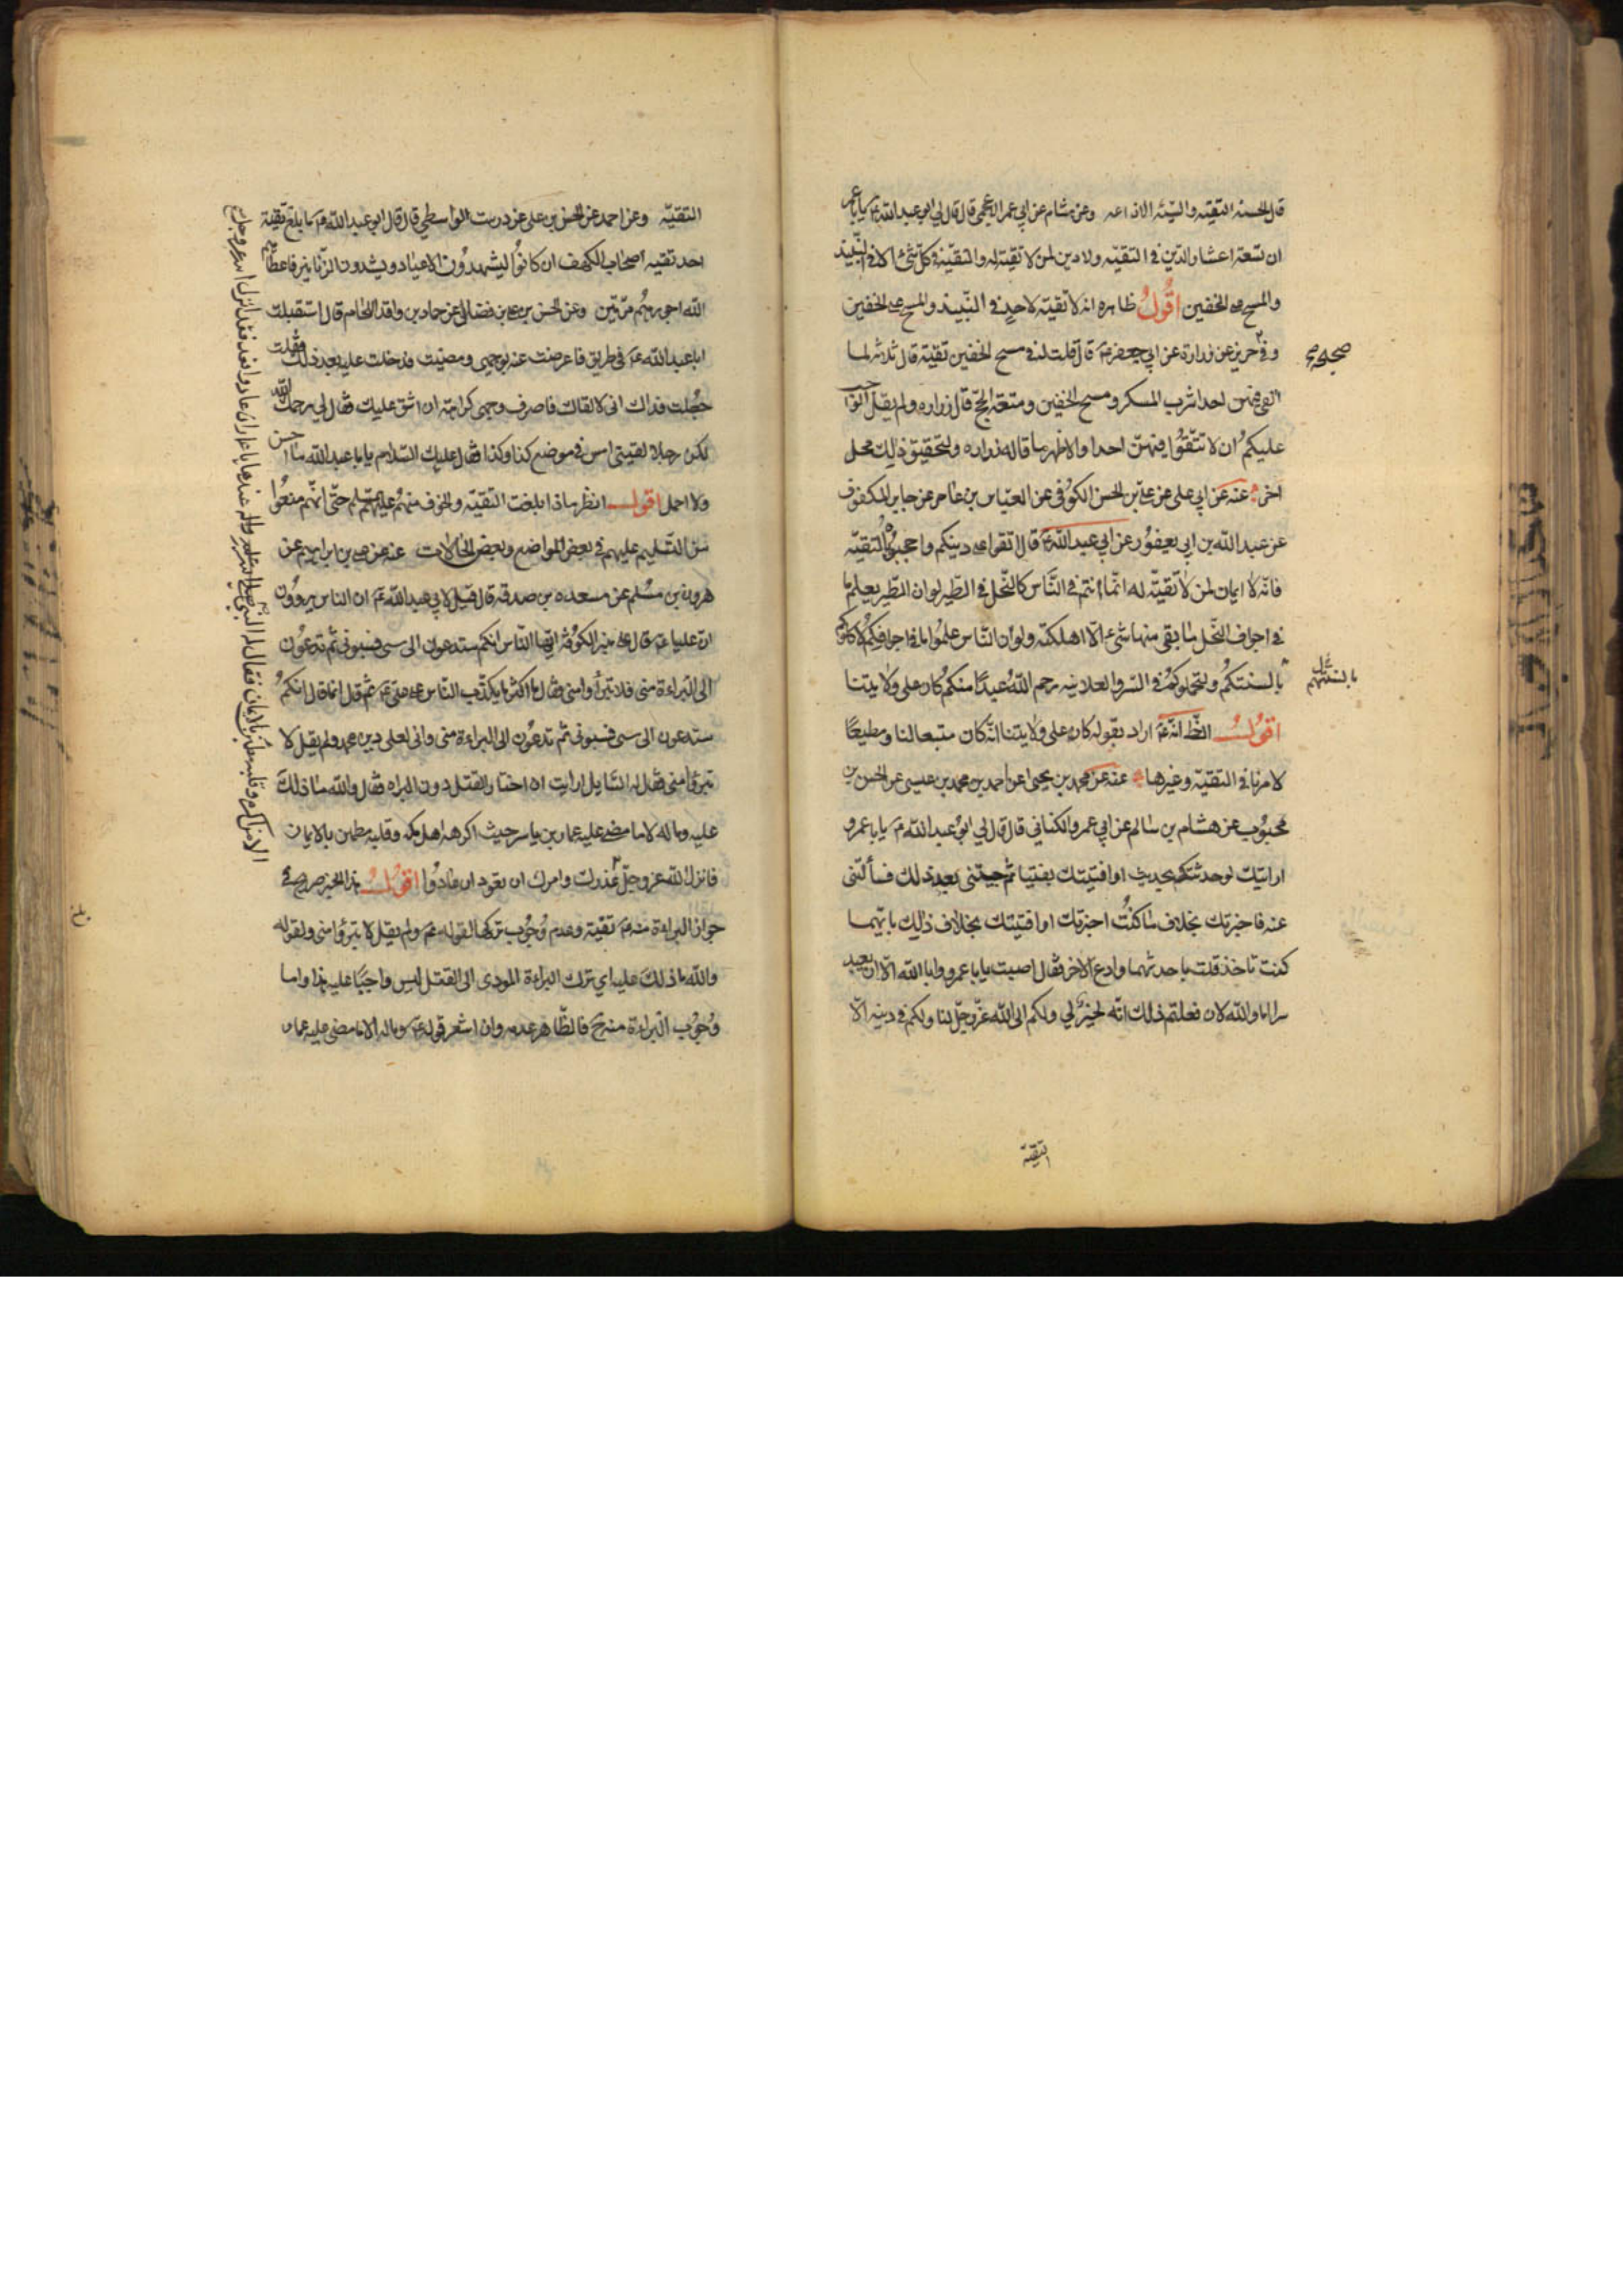 قال الحسنه التقيّه والسيّئه الاذاعه وعن هشام عن ابي عمر الاعجمي قال قال لي ابو عبدالله ع يابا عمر
ان تسعة اعشار الدّين في التقيّه ولا دين لمن لا تقيّة له والتقيّة في كل شئ الا في النّبيذ
والمسح على الخفين اقول ظاهره انه لا تقيّة لاحد في النّبيذ والمسح على الخفين
وفي حريز عن زرارة عن ابي جعفر ع قال قلت له في مسح الخفين تقيّة قال ثلاثه لا
صحيح
اتقي فيهن احدا شرب المسكر ومسح الخفين ومتعة الحج قال زراره ولم يقل الواجب
عليكم ان لا تتّقوا فيهنّ احدا والاظهر ما قاله زراره ولتحقيق ذلك محل
اخر عنه عن ابي علي عن علي بن الحسن الكوفي عن العبّاس بن عامر عن جابر المكفوف
عن عبدالله بن ابي يعفور عن ابي عبدالله ع قال اتقوا على دينكم واحجبوه بالتقيّه
فانّه لا ايمان لمن لا تقيّة له انّما انتم في النّاس كالنّحل في الطّير لو ان الطّير يعلم ما
في اجواف النّحل ما بقي منها شئ الّا اهلكته ولو ان النّاس علموا ما في اجوافكم لاكلوكم
بالسنتكم ولنحلوكم في السّر والعلانيه رحم الله عبدًا منكم كان على ولايتنا
بالسنتهم
اقول الظ انّه ع اراد بقوله كان على ولايتنا انّه كان متبعا لنا ومطيعًا
لامرنا في التقيّة وغيرها عنه عن محمد بن يحيى عن احمد بن محمد بن عيسى عن الحسن بن
محبوب عن هشام بن سالم عن ابي عمرو الكناني قال قال لي ابو عبدالله ع يابا عمرو
ارايتك لو حدثتك بحديث او افتيتك بفتيا ثم جئتني بعد ذلك فسألتني
عنه فاخبرتك بخلاف ما كنت اخبرتك او افتيتك بخلاف ذلك بايّهما
كنت تاخذ قلت باحدثهما وادع الاخر فقال اصبت يابا عمرو وابا الله الّا ان يعبد
سرا اما والله لان فعلتم ذلك انّه لخير لي ولكم ابى الله عزّ وجلّ لنا ولكم في دينه الّا
التقيّة
التقيّه وعن احمد عن الحسن بن علي عن درست الواسطي قال قال ابو عبدالله ع ما بلغ تقيّة
احد تقيه اصحاب الكهف ان كانوا ليشهدون الاعياد ويشدون الزّنانير فاعطاهم
الله اجرهم مرّتين وعن الحسن بن علي بن فضال عن حماد بن واقد اللحام قال استقبلت
ابا عبدالله ع في طريق فاعرضت عنه بوجهي ومضيت فدخلت عليه بعد ذلك فقلت
جعلت فداك اني لالقاك فاصرف وجهي كراهة ان اشق عليك فقال لي رحمك الله
لكن رجلا لقيني امس في موضع كذا وكذا فقال عليك السّلام يابا عبدالله ما احسن
ولا اجمل اقول انظر ماذا بلغت التقيّة والخوف منهم عليهم السلم حتّى انّهم منعوا
من التّسليم عليهم في بعض المواضع وبعض الحالات عنه عن علي بن ابراهيم عن
هرون بن مسلم عن مسعده بن صدقه قال قيل لابي عبدالله ع ان الناس يروون
انّ عليا ع قال على منبر الكوفة ايّها النّاس انكم ستدعون الى سبي فسبوني ثم تدعون
الى البراءة مني فلا تبرأوا مني فقال ما اكثر ما يكذّب النّاس على علي ع ثم قال انما قال انكم
ستدعون الى سبي فسبوني ثم تدعون الى البراءة مني واني لعلى دين محمد ولم يقل لا
تبرؤا مني فقال له السّايل ارايت ان اختار القتل دون البراه فقال والله ما ذلك
عليه وما له الا ما مضى عليه عمار بن ياسر حيث اكرهه اهل مكه وقلبه مطمئن بالايمان
فانزل الله عز وجلّ عذرك وامرك ان تعود ان عادوا اقول هذا الخبر صريح في
جواز البراءة منه ع تقيّة وعدم وجوب تركها لقوله ع ولم يقل لا تبرؤا مني ولقوله
والله ما ذلك عليه اي ترك البراءة المودي الى القتل ليس واجبًا عليه هذا واما
وجوب البراءة منه ح فالظّاهر عدمه وان اشعر قوله ع وما له الا ما مضى عليه عمار
الا من اكره وقلبه مطمئن بالايمان فقال له النبي صلى الله عليه واله عندها يا عمار ان عادوا فعد فقد انزل الله عز وجل
بلغ